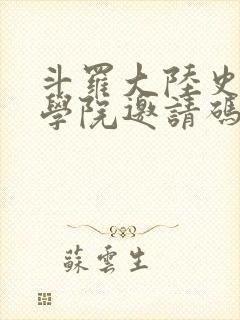 斗羅大陸史
學院邀請碼
蘇雲生